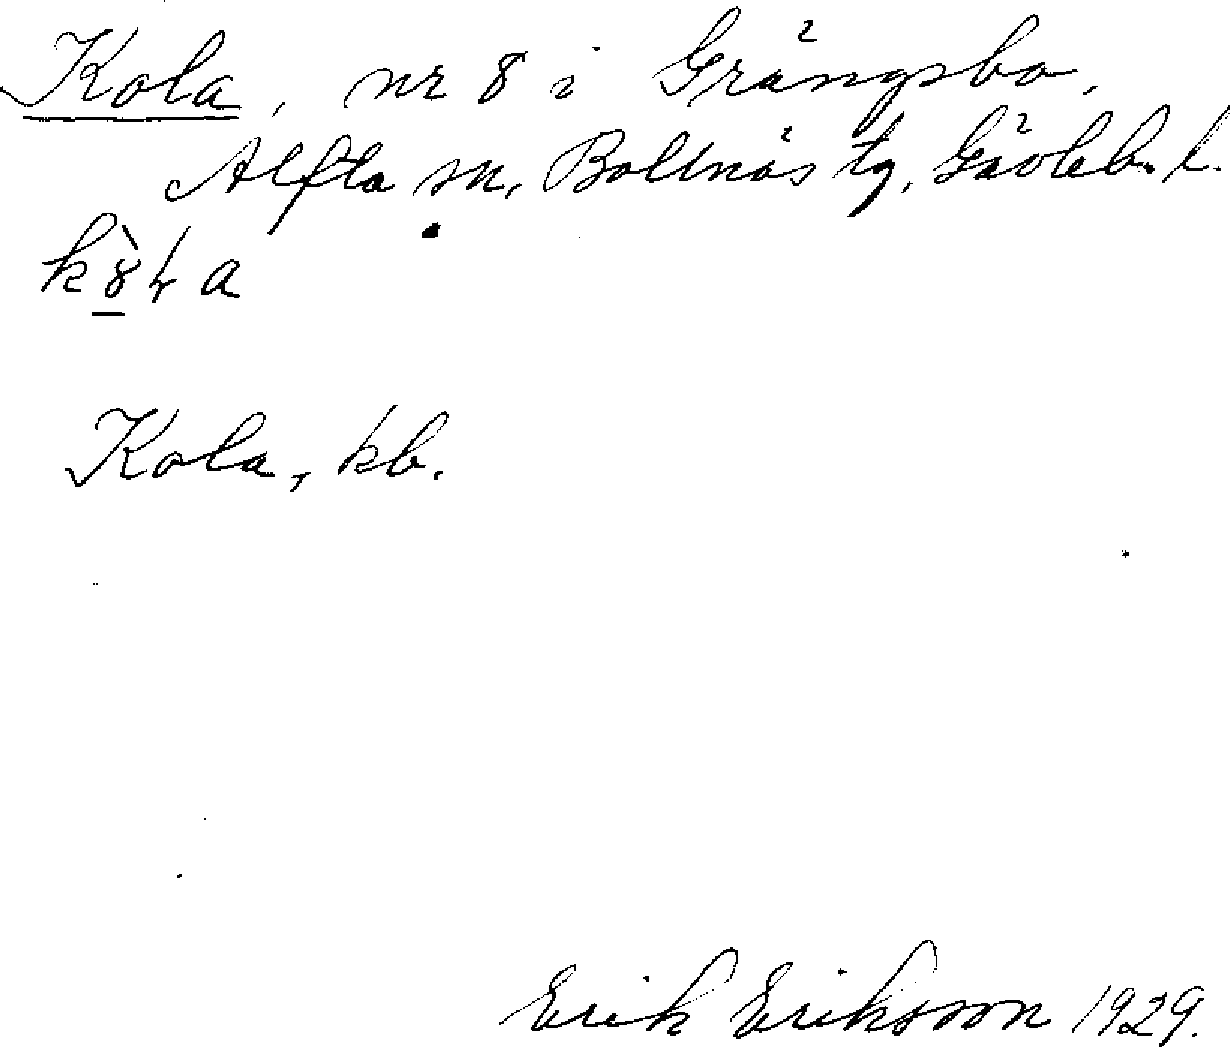 Kola, nr 8 i Grängsbo,
Alfta sn, Bollnäs tg, Gävleb. l.
Kola, kb.
Erik Eriksson 1929.